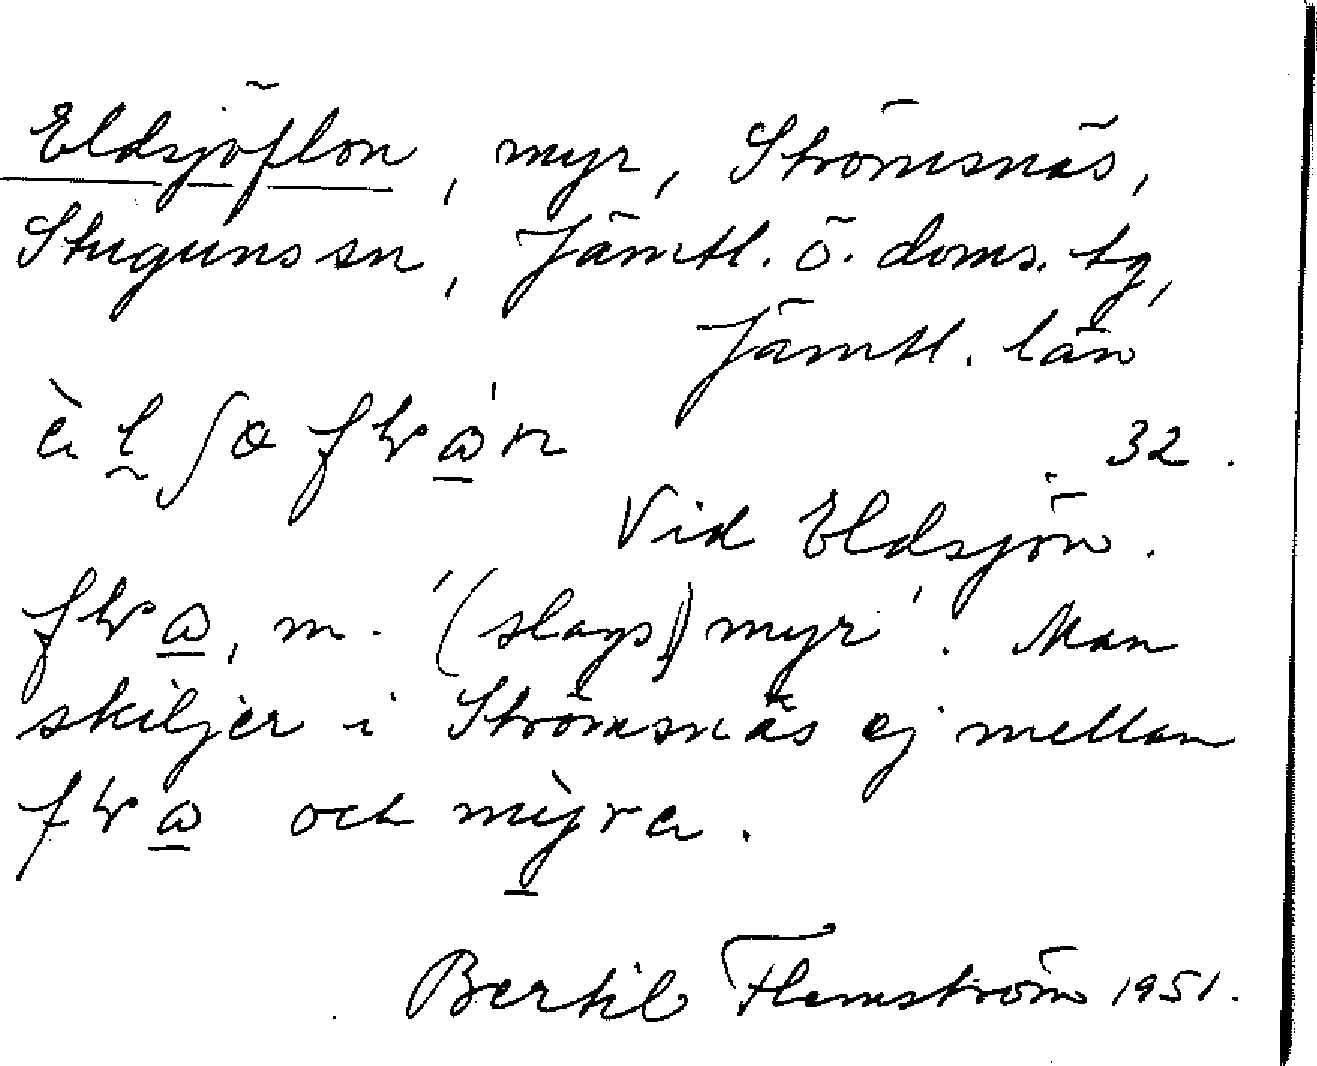 Eldsjöflon, myr, Strömsnäs,
Stuguns sn, Jämtl. ö. doms. tg,
Jämtl. län
32.
Vid Eldsjön.
m. '(slags) myr'. Man
skiljer i Strömsnäs ej mellan
och
Bertil Flemström 1951.